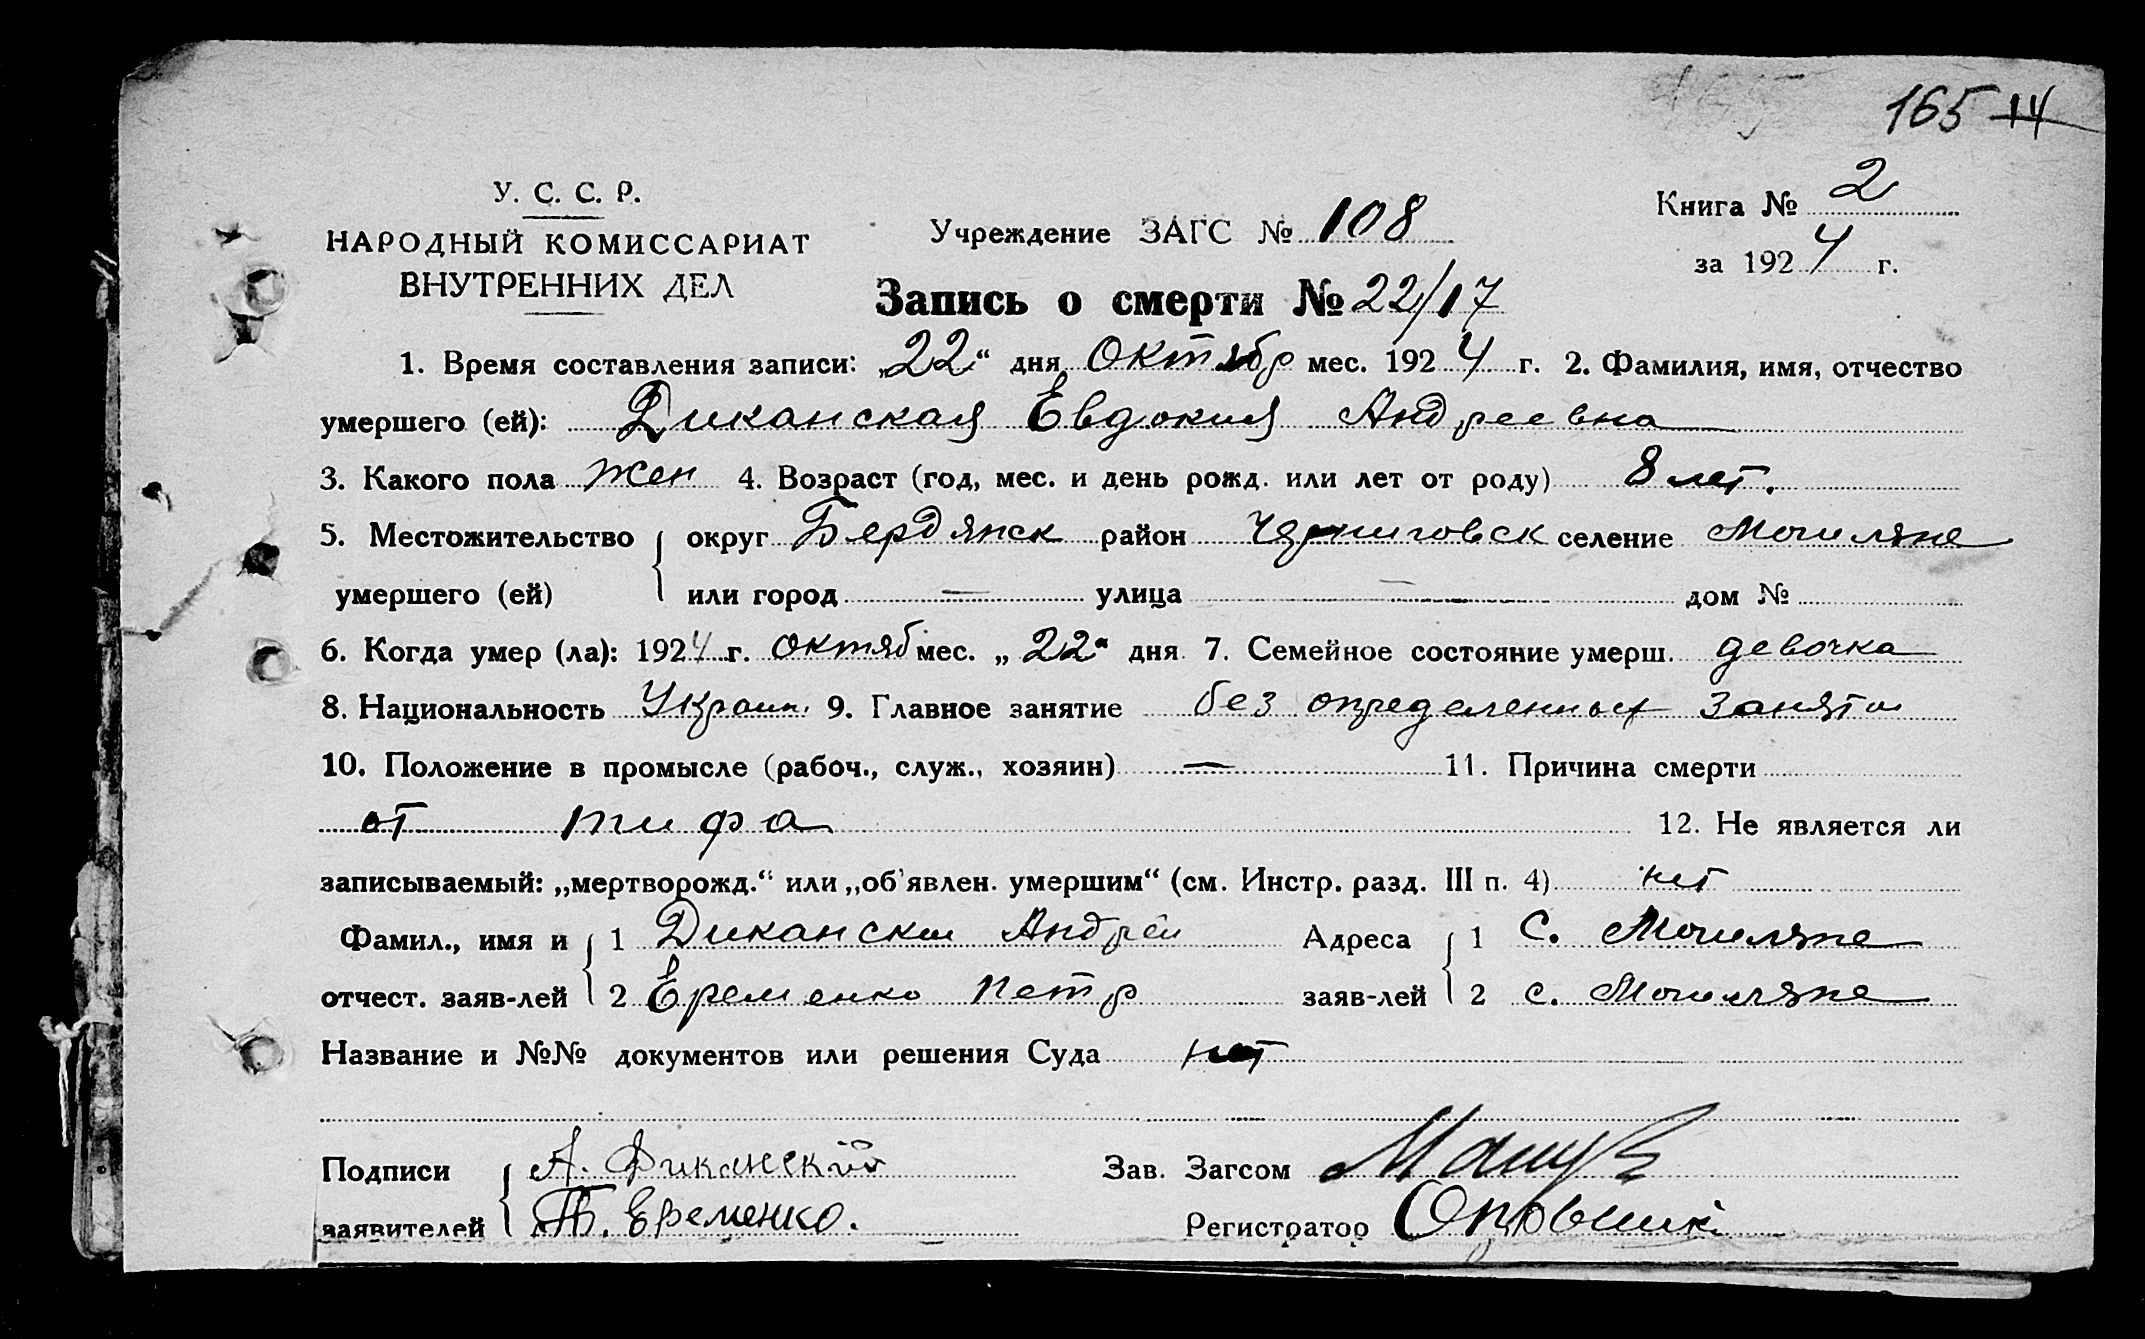 165 14
У. С. С. Р.
НАРОДНЫЙ КОМИССАРИАТ
ВНУТРЕННИХ ДЕЛ
Учреждение ЗАГС № 108
Книга № 2
за 1924 г.
Запись о смерти № 22/17
1. Время составления записи: „22“ дня Октябр мес. 1924 г. 2. Фамилия, имя, отчество
умершего (ей): Диканская Евдокия Андреевна
3. Какого пола жен 4. Возраст (год, мес. и день рожд. или лет от роду) 8 лет.
5. Местожительство округ Бердянск район Черниговск селение Могиляне
умершего (ей) или город — улица — дом №
6. Когда умер (ла): 1924 г. октяб мес. „22“ дня 7. Семейное состояние умерш. девочка
8. Национальность Украин. 9. Главное занятие без определенных заняти
10. Положение в промысле (рабоч., служ., хозяин) — 11. Причина смерти
от тифа 12. Не является ли
записываемый: „мертворожд.“ или „об'явлен. умершим“ (см. Инстр. разд. III п. 4) нет
Фамил., имя и 1 Дикански Андреи Адреса 1 С. Могиляне
отчест. заяв-лей 2 Еременко Петр заяв-лей 2 с. Могиляне
Название и №№ документов или решения Суда нет
Подписи А. Диканский Зав. Загсом
заявителей П. Еременко. Регистратор